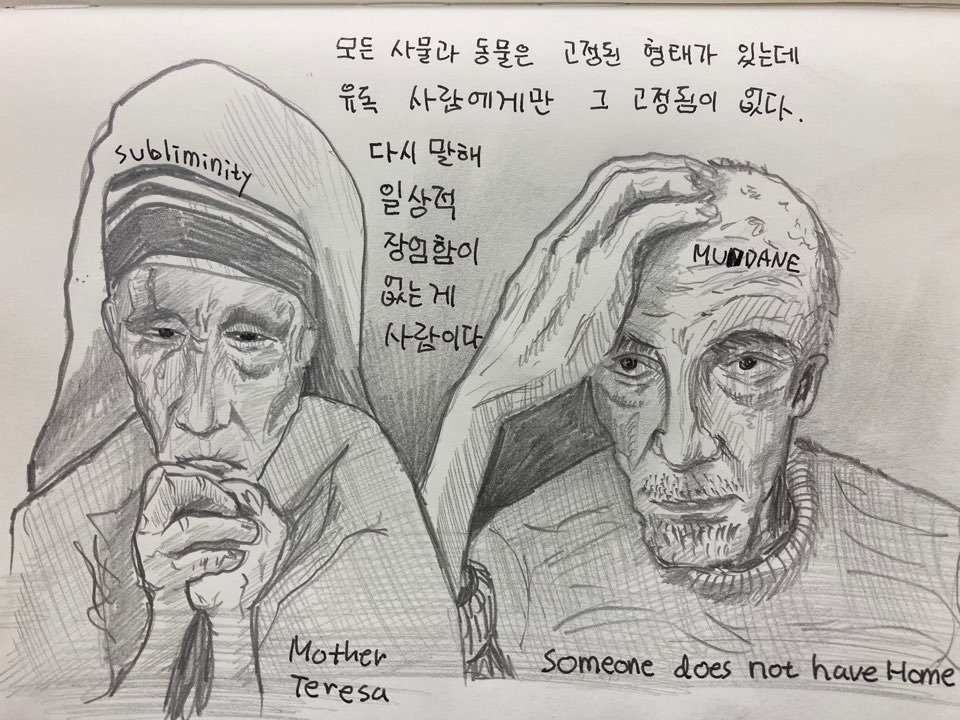 모든 사물과 동물은 고정된 형태가 있는데
유독 사람에게만 그 고정됨이 없다.
다시 말해
일상적
장엄함이
없는게
사람이다
subliminity
MUNDANE
Mother
Teresa
Someone does not have Home